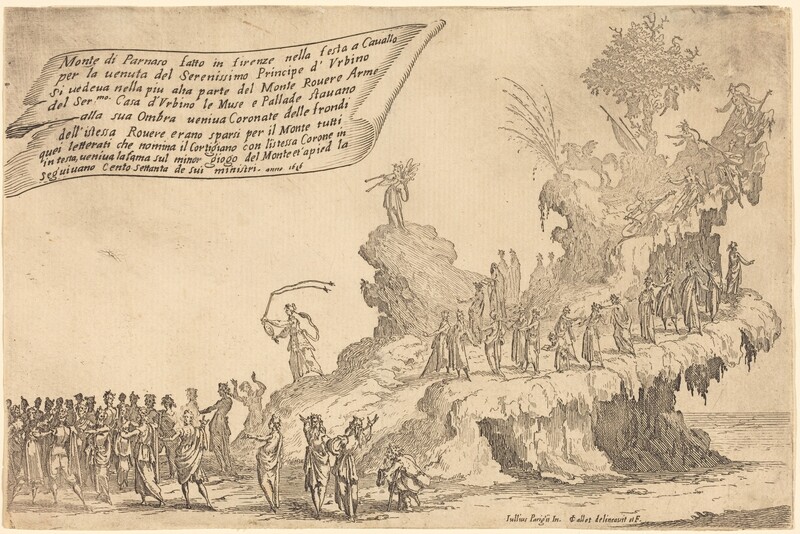 Monte di Parnaso fatto in firenze nella festa a Cauallo
per la uenuta del Serenissimo Principe d' Vrbino
Si uedeua nella piu alta parte del Monte Rouere Arme
del Ser.mo Casa d'Vrbino le Muse e Pallade stauano
alla sua Ombra ueniua Coronate delle frondi
dell'istessa Rouere erano sparsi per il Monte tutti
quei letterati che nomina il Cortigiano con listessa Corone in
in testa, ueniua lafama sul minor giogo del Monte et apied la
seguiuano Cento settanta de sui ministri. anno 1616
Iullius Parigii In. Callot delineauit et F.